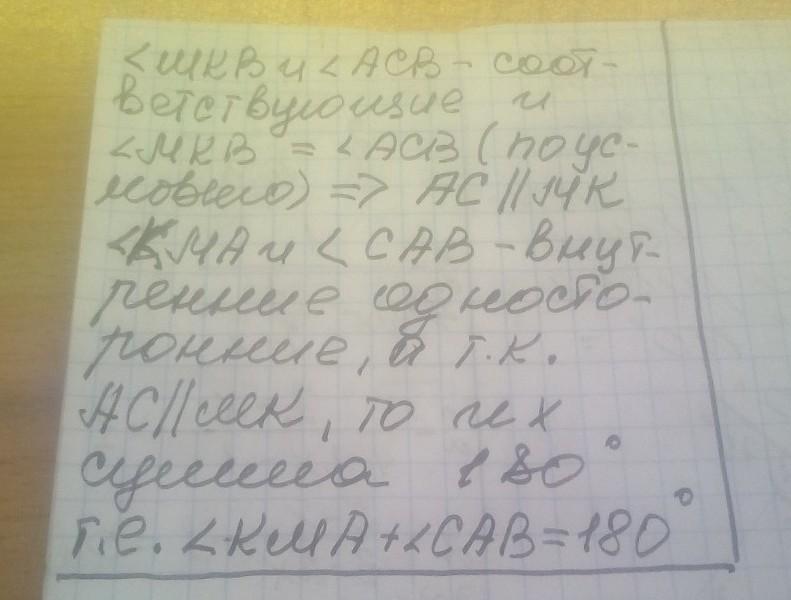 <МКВ и <АСВ - соот-
ветствующие и
<МКВ = <АСВ (по ус-
ловию) => АС || МК
<КМА и < САВ - внут-
ренние односто-
ронние, а т.к.
АС || МК, то их
сумма 180°
т.е. <КМА + <САВ = 180°